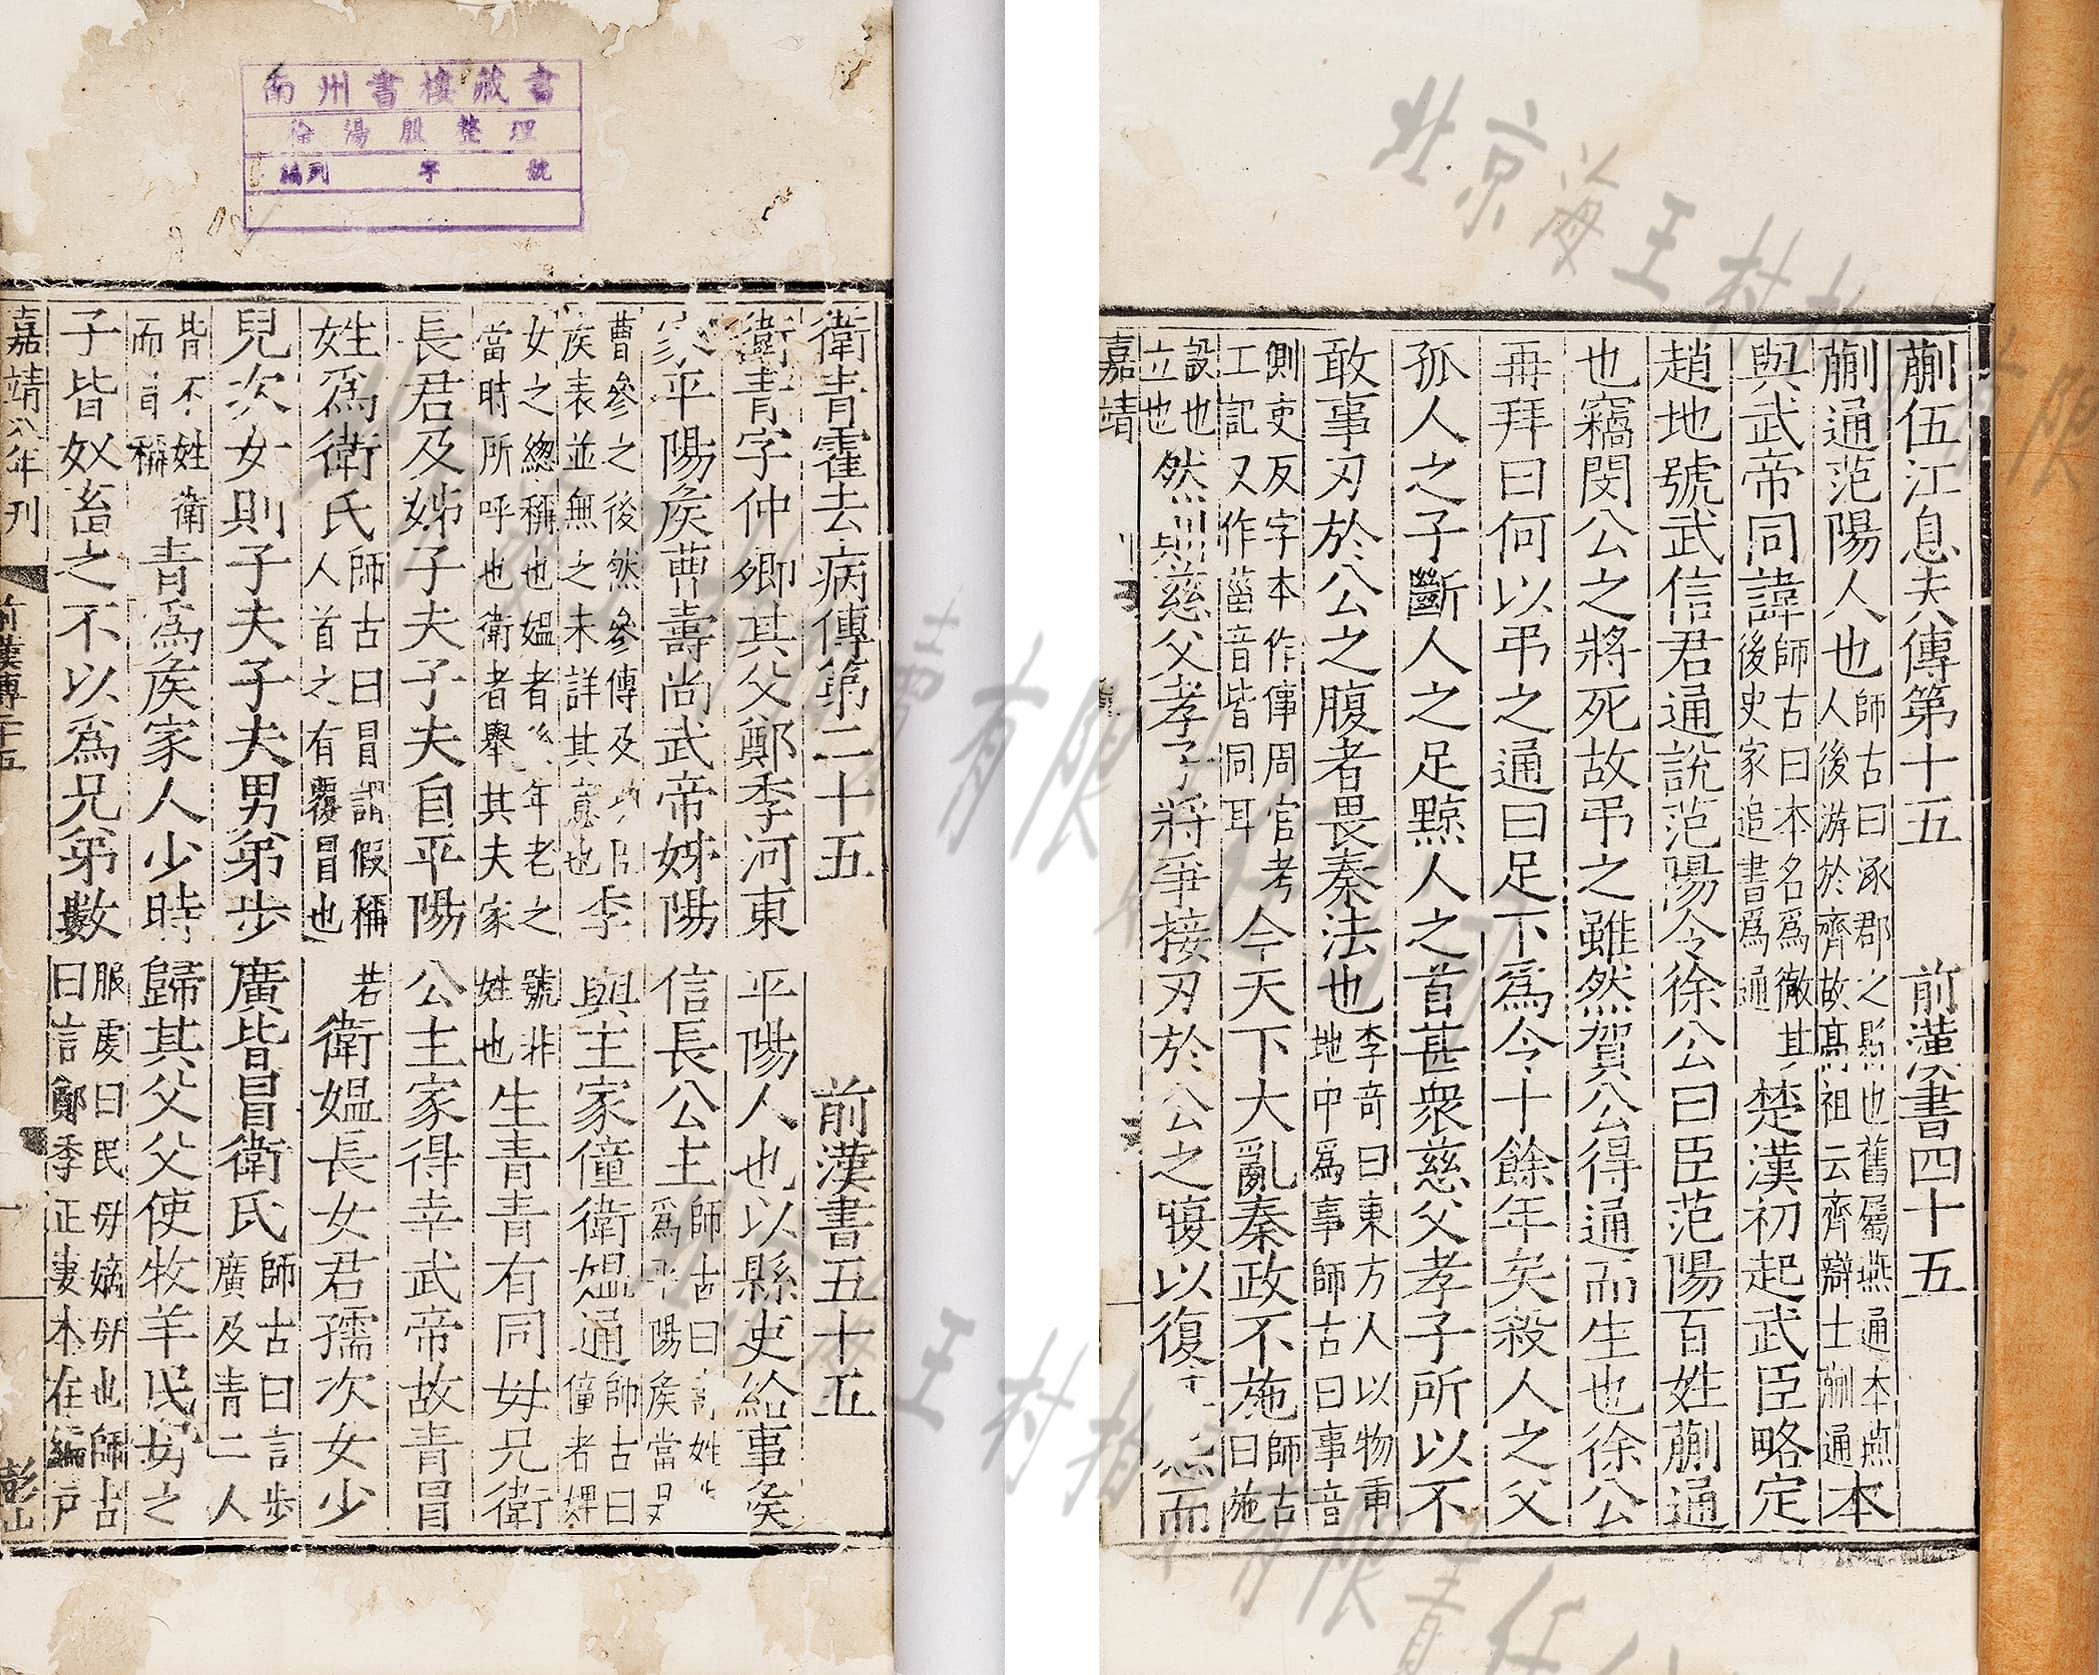 蒯伍江息夫傳第十五　前漢書四十五
蒯通范陽人也師古曰涿郡之縣也舊屬燕通本燕人後游於齊故高祖云齊辯士蒯通本
與武帝同諱師古曰本名爲徹其後史家追書爲通楚漢初起武臣略定
趙地號武信君通說范陽令徐公曰臣范陽百姓蒯通
也竊閔公之將死故弔之雖然賀公得通而生也徐公
再拜曰何以弔之通曰足下爲令十餘年矣殺人之父
孤人之子斷人之足黥人之首甚衆慈父孝子所以不
敢事刃於公之腹者畏秦法也李奇曰東方人以物臿地中爲事師古曰事音
側吏反字本作倳周官考工記又作菑音皆同耳今天下大亂秦政不施師古曰施
設也立也然則慈父孝子將爭接刃於公之腹以復怨而
嘉靖
南州書樓藏書
徐湯殷整理
編列 字 號
衛青霍去病傳第二十五　前漢書五十五
衛青字仲卿其父鄭季河東平陽人也以縣吏給事侯
家平陽侯曹壽尚武帝姊陽信長公主師古曰壽姓爲平陽侯當是
曹參之後然參傳及功臣侯表並無之未詳其意也季與主家僮衛媼通師古曰僮者婢
女之總稱也媼者後年老之號非當時所呼也衛者舉其夫家姓也生青青有同母兄衛
長君及姊子夫子夫自平陽公主家得幸武帝故青冒
姓爲衛氏師古曰冒謂假稱若人首之有覆冒也衛媼長女君孺次女少
兒次女則子夫子夫男弟步廣皆冒衛氏師古曰言步廣及青二人
皆不姓衛而冒稱青爲侯家人少時歸其父父使牧羊民母之
子皆奴畜之不以爲兄弟數服虔曰民母嫡母也師古曰言鄭季正妻本在編戶
嘉靖八年刊　前漢傳二十五　一　彭山
北京海王村拍賣有限責任公司